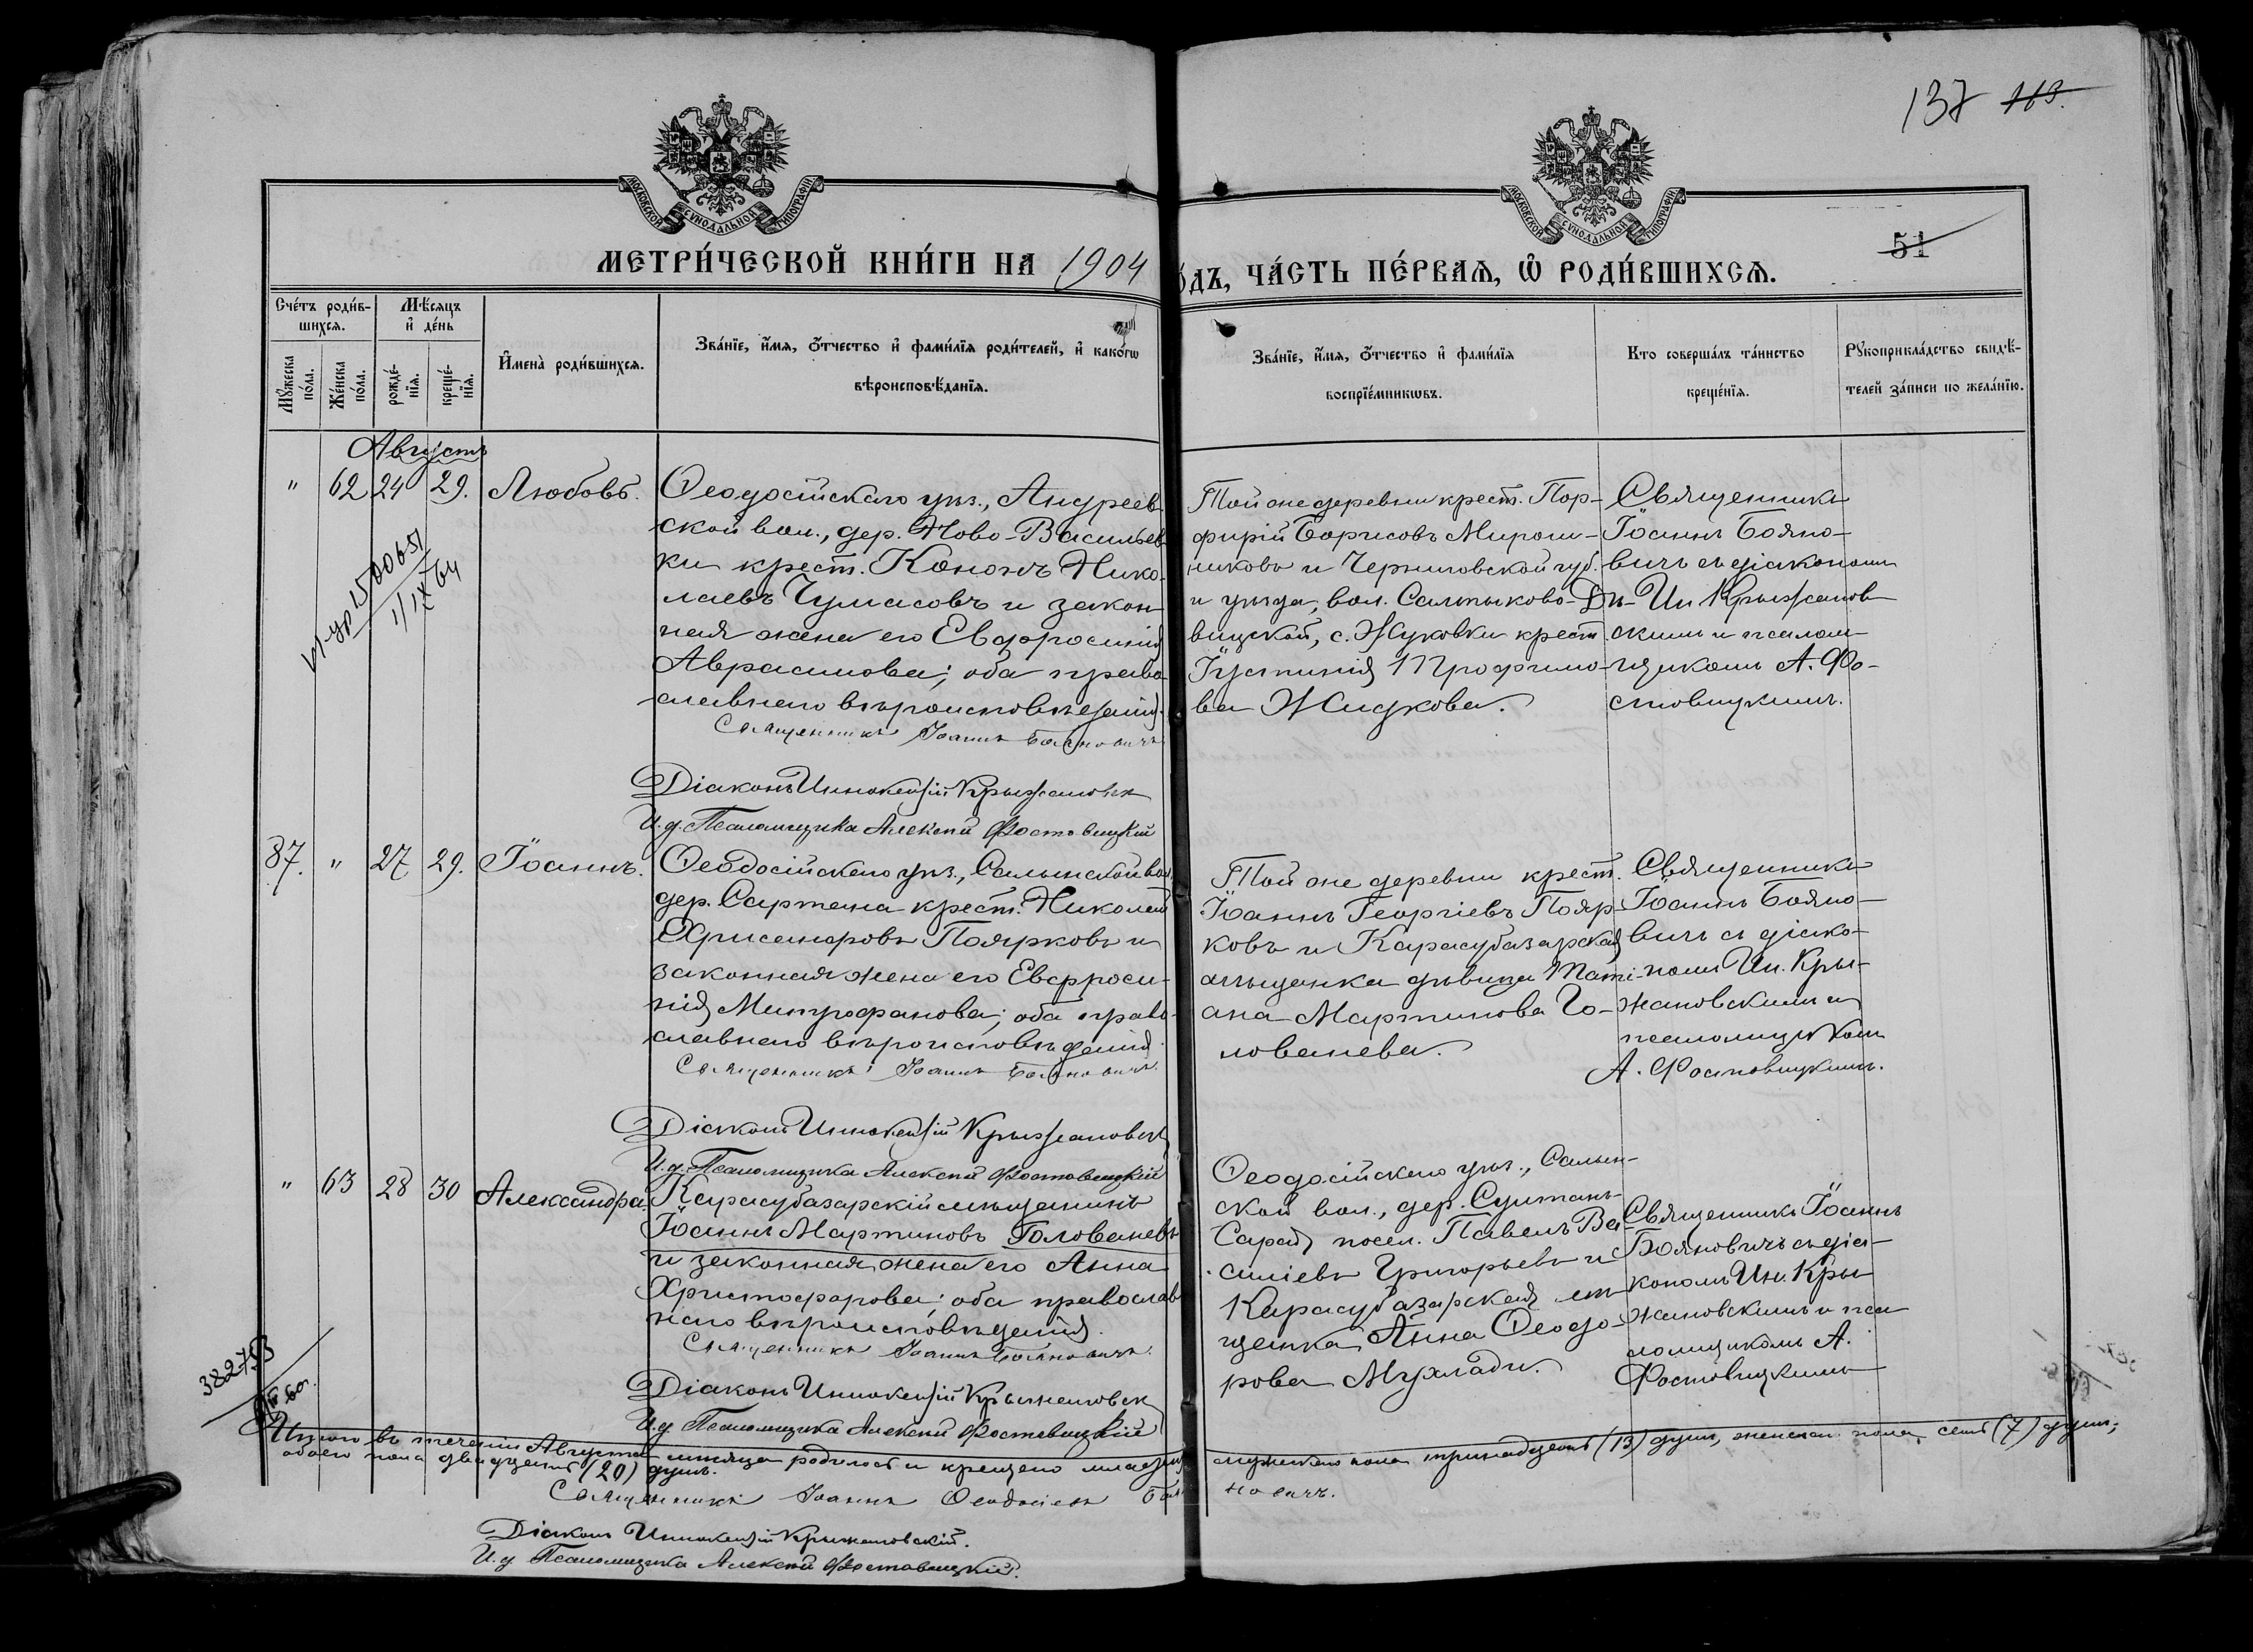 137 113.
МОСКОВСКОЙ СѴНОДАЛЬНОЙ ТИПОГРАФІИ
МОСКОВСКОЙ СѴНОДАЛЬНОЙ ТИПОГРАФІИ
51
МЕТРИ́ЧЕСКОЙ КНИ́ГИ НА 1904
ѾДЪ, ЧА́СТЬ ПЕ́РВАЯ, Ѡ҆ РОДИ́ВШИХСЯ.
Сче́тъ роди́в-
шихся.
Мѣ́сяцъ
и҆ де́нь
Мꙋ́жеска
по́ла.
Же́нска
по́ла.
рожде́-
нїя.
креще́-
нїя.
И҆мена̀ роди́вшихся.
Зва́нїе, и҆́мя, ѻ҆́тчество и҆ фами́лїя роди́телей, и҆ како́гѡ
вѣроисповѣ́данїя.
Зва́нїе, и҆́мя, ѻ҆́тчество и҆ фами́лїя
воспрїе́мникѡвъ.
Кто соверша́лъ та́инство
креще́нїя.
Рꙋкоприкла́дство свидѣ́-
телей за́писи по жела́нїю.
Августъ
" 62 24 29. Любовь.
Ѳеодосійскаго уѣз., Андреев-
ской вол., дер. Ново-Васильев-
ки крест. Кононъ Нико-
лаевъ Чумасовъ и закон-
ная жена его Евфросинія
Аврасимова; оба право-
славнаго вѣроисповѣданія.
Священникъ Іоаннъ Бояновичъ
Діаконъ Иннокентій Крыжановск
И.д. Псаломщика Алексѣй Фостовицкій
Той же деревни крест. Пор-
фирій Борисовъ Мирош-
никовъ и Черниговской губ.
и уѣзда, вол. Салтыково-Дѣ-
вицкой, с. Жуковки крест.
Іустинія Трофимо-
ва Жидкова.
Священникъ
Іоаннъ Бояно-
вичъ съ діакономъ
Ин. Крыжанов-
скимъ и псалом-
щикомъ А. Фо-
стовицкимъ.
87. " 27 29. Іоаннъ.
Ѳеодосійскаго уѣз., Салынской вол.
дер. Сартана крест. Николай
Хрисанфовъ Поярковъ и
законная жена его Евфроси-
нія Митрофанова; оба право-
славнаго вѣроисповѣданія.
Священникъ Іоаннъ Бояновичъ
Діаконъ Иннокентій Крыжановск
И.д. Псаломщика Алексѣй Фостовицкій
Той же деревни крест.
Іоаннъ Георгіевъ Пояр-
ковъ и Карасубазарская
мѣщанка дѣвица Таті-
ана Мартинова Го-
лованева.
Священникъ
Іоаннъ Бояно-
вичъ съ діако-
номъ Ин. Кры-
жановскимъ и
псаломщикомъ
А. Фостовицкимъ.
" 63 28 30 Александра.
Карасубазарскій мѣщанинъ
Іоаннъ Мартиновъ Голованевъ
и законная жена его Анна
Христофорова; оба православ-
наго вѣроисповѣданія.
Священникъ Іоаннъ Бояновичъ.
Діаконъ Иннокентій Крыжановск
И.д. Псаломщика Алексѣй Фостовицкій
Ѳеодосійскаго уѣз., Салын-
ской вол., дер. Султанъ-
Сарай, посел. Павелъ Ва-
силіевъ Григорьевъ и
Карасубазарская мѣ-
щанка Анна Ѳеодо-
рова Мухлади.
Священникъ Іоаннъ
Бояновичъ съ діа-
кономъ Ин. Кры-
жановскимъ и пса
ломщикомъ А.
Фостовицкимъ
Итого въ теченіи Августа мѣсяца родилось и крещено младенц мужескаго пола тринадцать (13) душъ, женскаго пола семь (7) душъ,
обоего пола двадцать (20) душъ.
Священникъ Іоаннъ Ѳеодосіевъ Бояновичъ.
Діаконъ Иннокентій Крыжановскій.
И.д Псаломщика Алексѣй Фостовицкій.